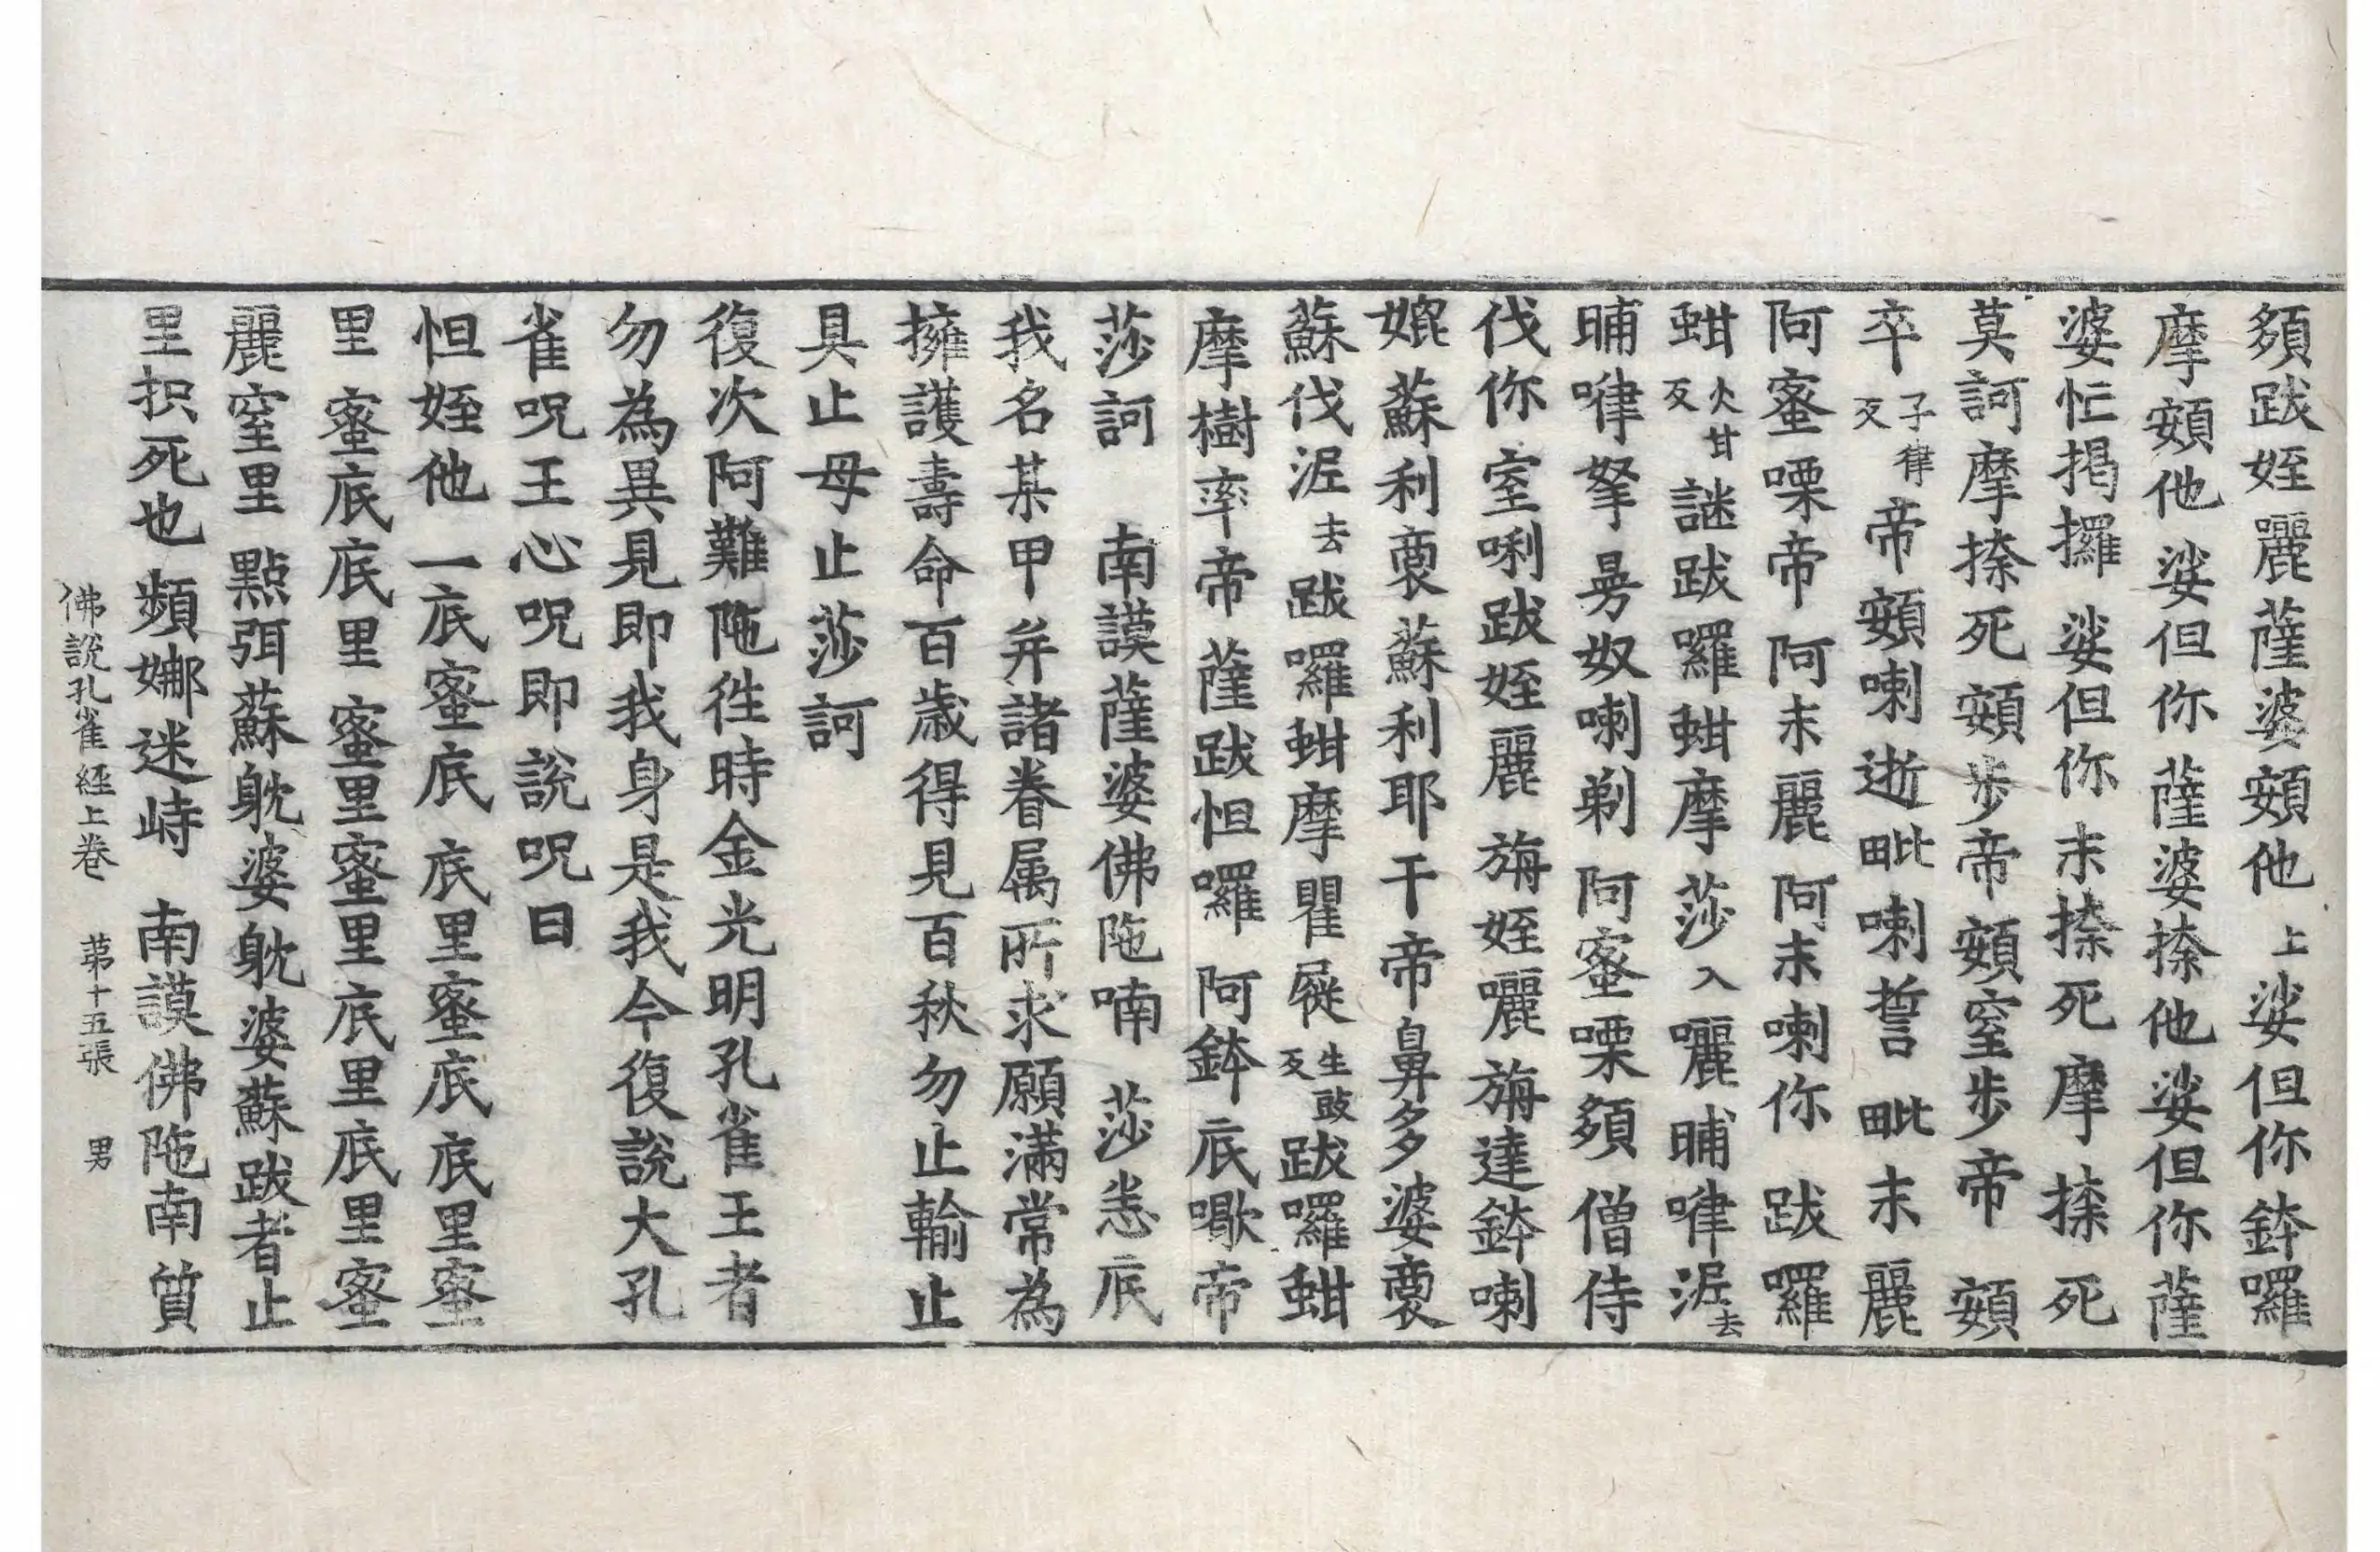 頞跋姪囉薩婆頞他上娑但你鉢囉
摩頞他娑但你薩婆捺他娑但你薩
婆忙揭攞娑但你末捺死摩捺死
莫訶摩捺死頞步帝頞窒步帝頞
卒子律反帝頞喇逝毗喇誓毗末麗
阿蜜㗚帝阿末麗阿末喇你跋囉
蚶火甘反謎跋囉蚶摩莎入囇晡嘩泥去
晡嘩拏曷奴喇剃阿蜜㗚頞僧侍
伐你室唎跋姪麗旃姪囇旃達鉢喇
媲蘇利裒蘇利耶干帝鼻多婆裒
蘇伐泥去跋囉蚶摩瞿屣生跂反跋囉蚶
摩樹率帝薩跋怛囉阿鉢底㗿帝
莎訶南謨薩婆佛陁喃莎悉底
我名某甲并諸眷属所求願滿常為
擁護壽命百歲得見百秋勿止輸止
具止母止莎訶
復次阿難陁徃時金光明孔雀王者
勿為異見即我身是我今復說大孔
雀呪王心呪即說呪曰
怛姪他一底蜜底底里蜜底底里蜜
里蜜底底里蜜里蜜里底里底里蜜
麗窒里點弭蘇躭婆躭婆蘇跋者止
里抧死也頻娜迷峙南謨佛陁南質
佛說孔雀經上卷 第十五張 男